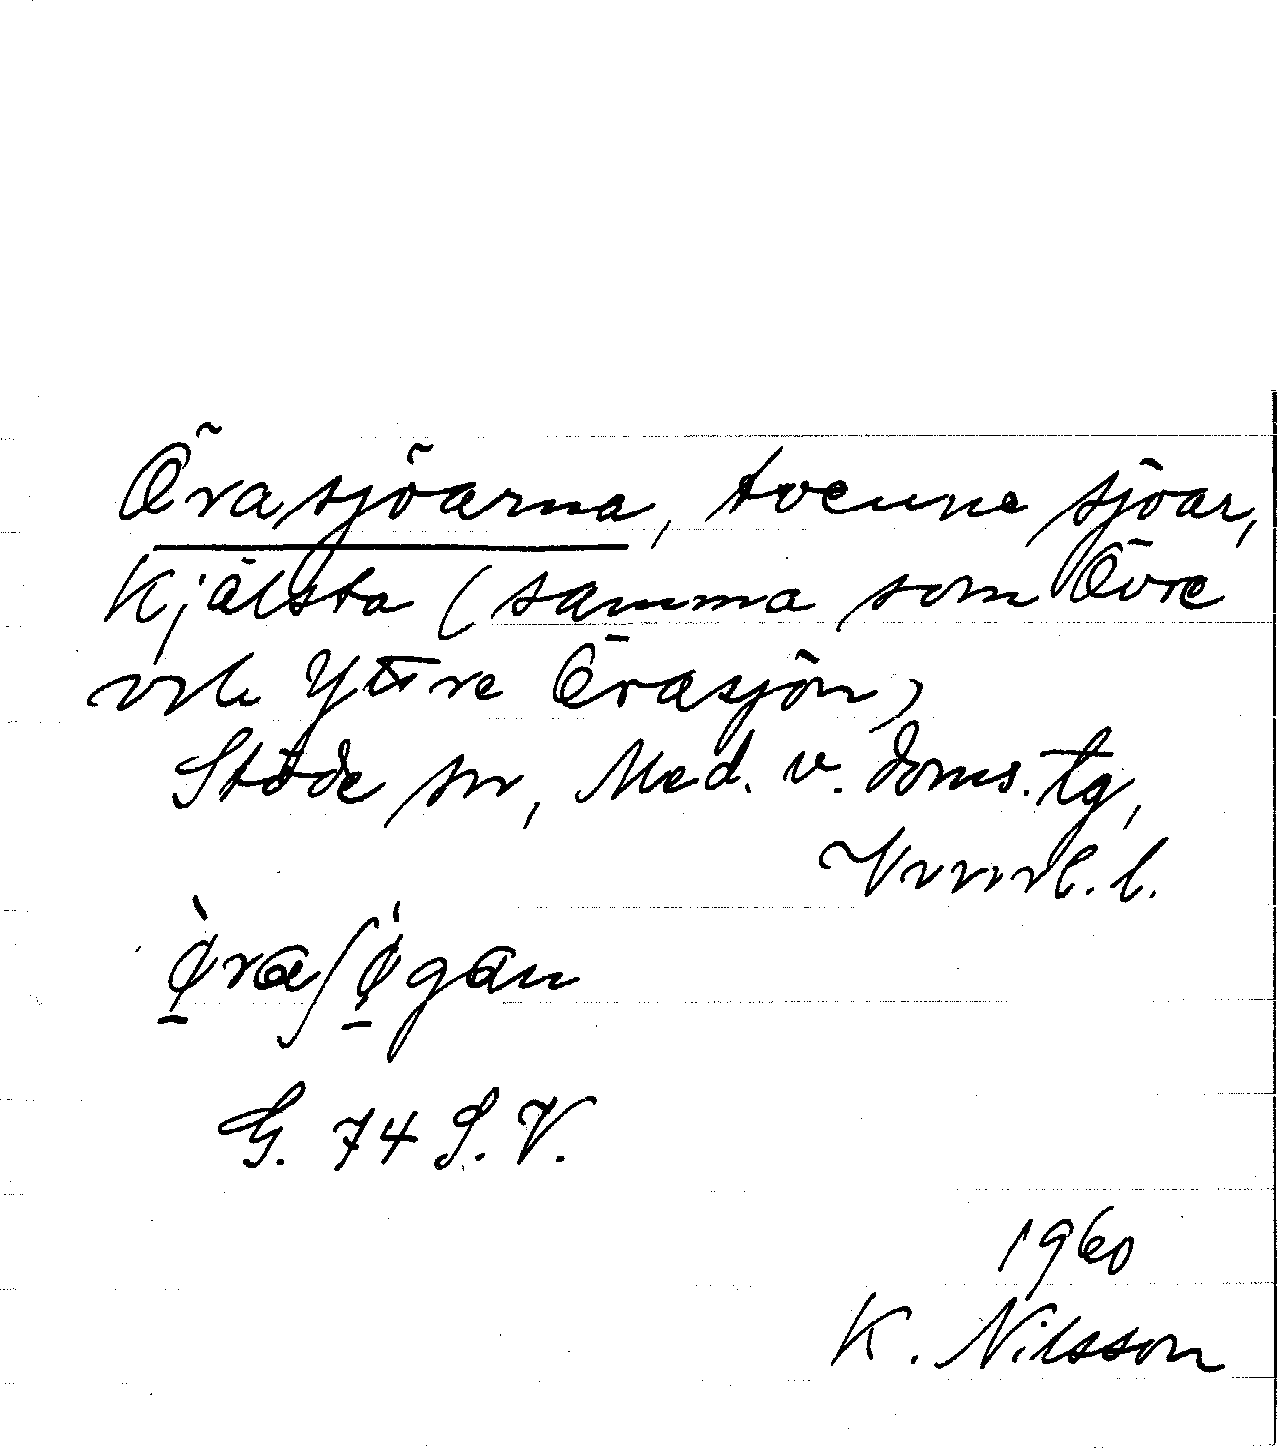 Örasjöarna, tvenne sjöar,
Kjälsta (samma som Övre
och Yttre Örasjön)
Stöde sn, Med. v. doms. tg,
Vnorrl. l.
ø̀raʃø̀gan
G. 74 S. V.
1960
K. Nilsson